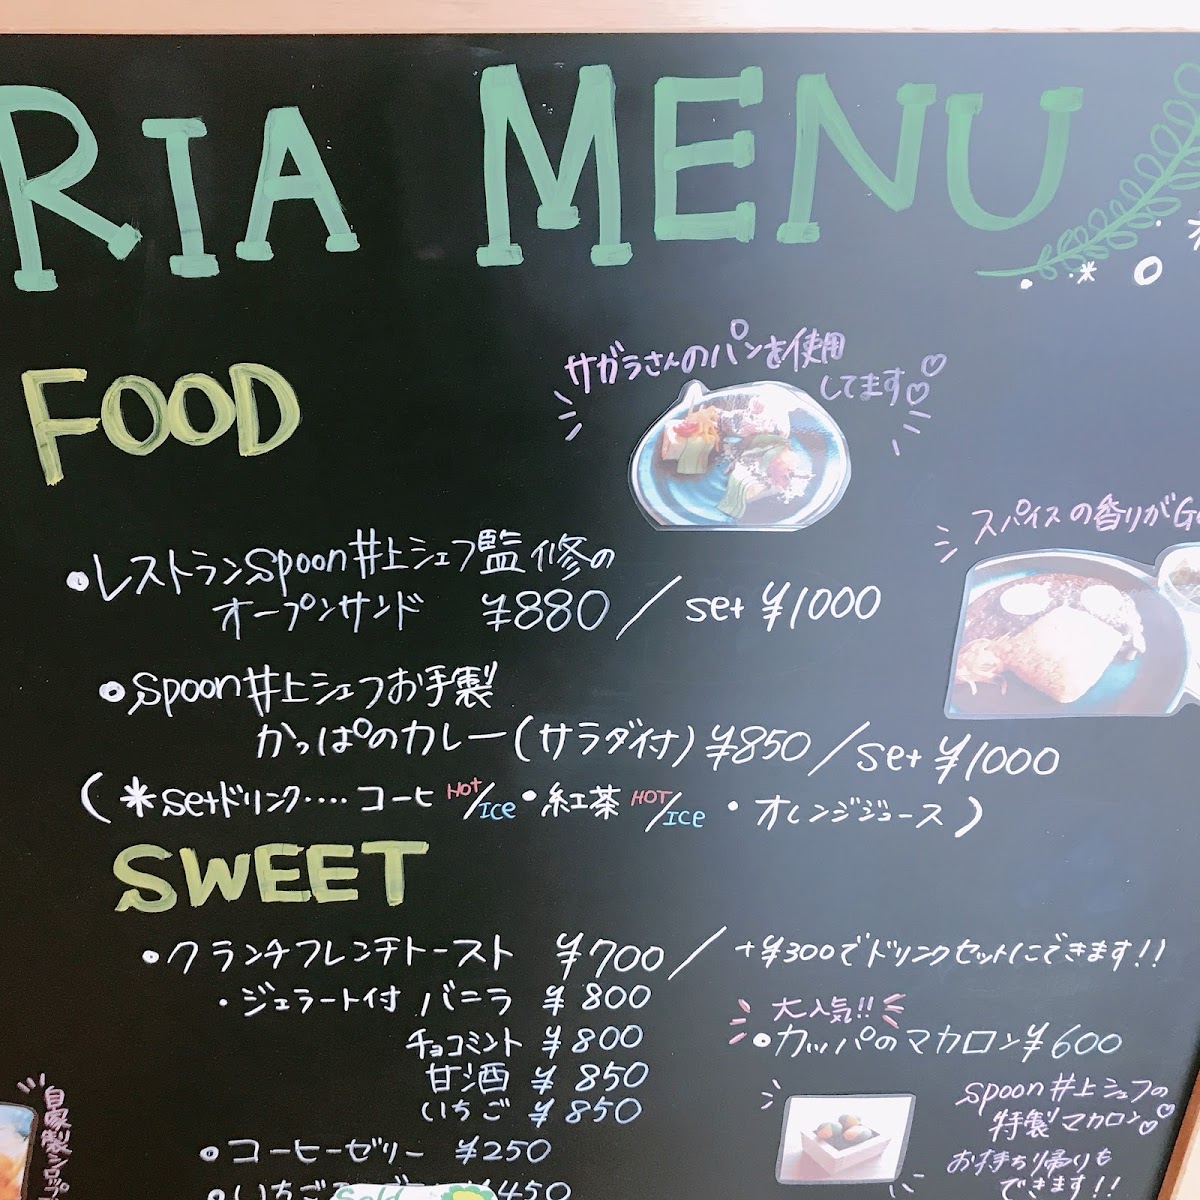 RIA MENU
サガラさんのパンを使用
してます♡♡
FOOD
スパイスの香りが
・レストランspoon井上シェフ監修の
オープンサンド ¥880 / set ¥1000
・spoon井上シェフお手製
かっぱのカレー(サラダ付) ¥850 / set ¥1000
(*setドリンク‥‥コーヒ HOT/ICE・紅茶 HOT/ICE・オレンジジュース)
SWEET
・クランチフレンチトースト ¥700 / +¥300でドリンクセットにできます!!
・ジェラート付 バニラ ¥800
チョコミント ¥800
甘酒 ¥850
いちご ¥850
大人気!!
・カッパのマカロン ¥600
spoon井上シェフの
特製マカロン♡
お持ち帰りも
できます!!
・コーヒーゼリー ¥250
・いちご
Sold
450
自家製シロップ